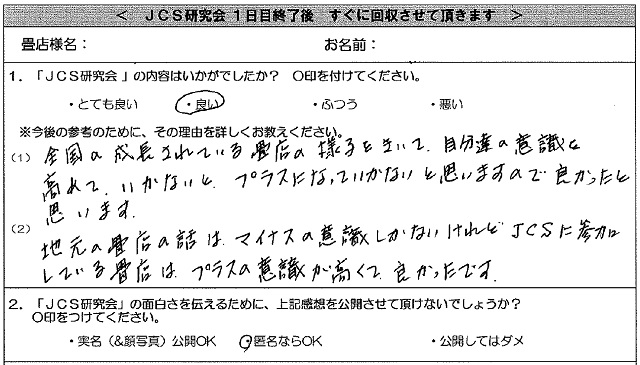 ＜ ＪＣＳ研究会 １日目終了後 すぐに回収させて頂きます ＞
畳店様名： お名前：
１．「ＪＣＳ研究会」の内容はいかがでしたか？ ○印を付けてください。
・とても良い ・良い ・ふつう ・悪い
※今後の参考のために、その理由を詳しくお教えください。
(1) 全国の成長されている畳店の様子をきいて、自分達の意識を
高めて、いかないと、プラスになっていかないと思いますので良かったと
思います。
(2) 地元の畳店の話は、マイナスの意識しかないけれどJCSに参加
している畳店は、プラスの意識が高くて良かったです。
２．「ＪＣＳ研究会」の面白さを伝えるために、上記感想を公開させて頂けないでしょうか？
○印をつけてください。
・実名（&顔写真）公開OK ・匿名ならOK ・公開してはダメ